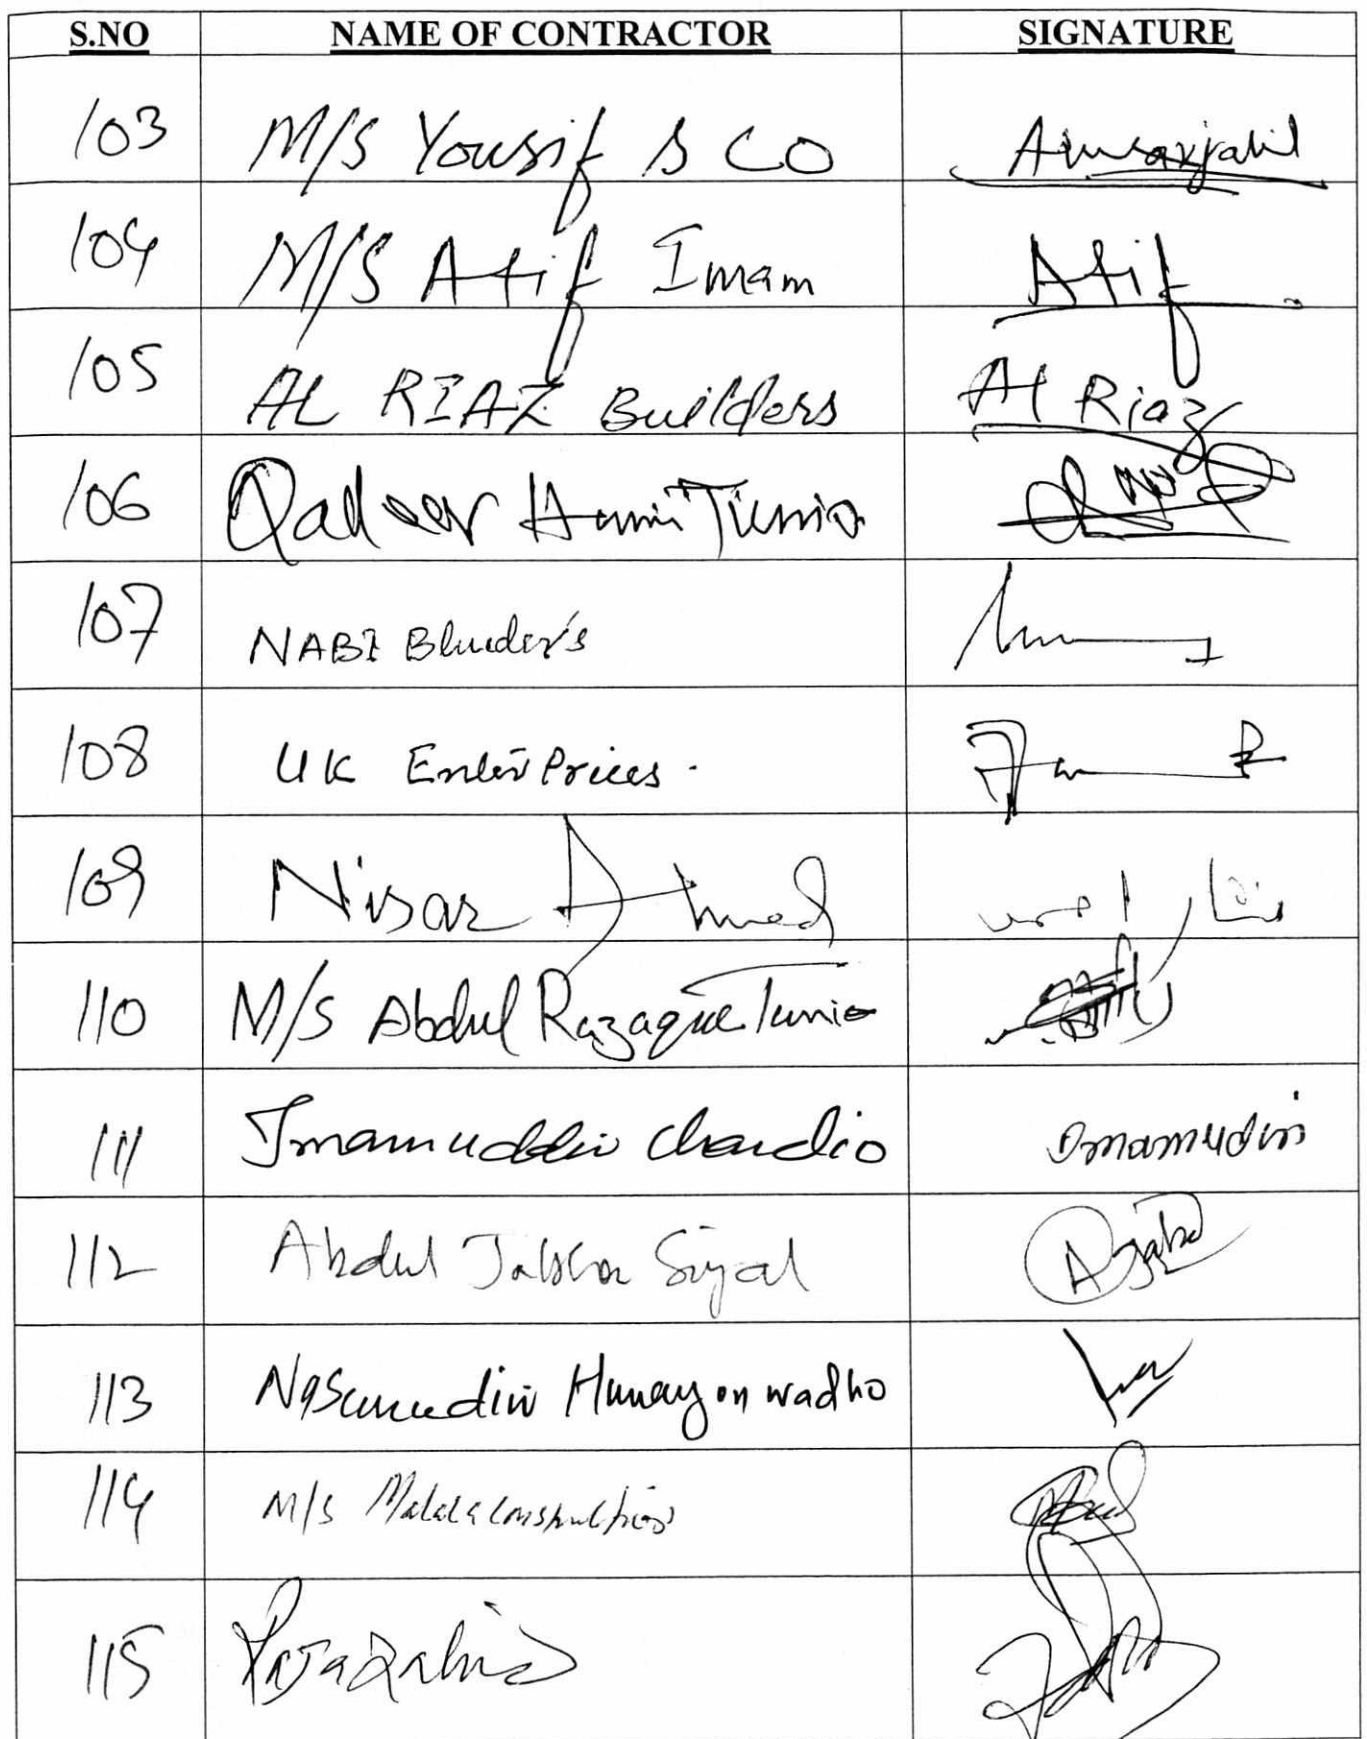 S.NO NAME OF CONTRACTOR SIGNATURE
103 M/S Yousif & CO
104 M/S Atif Imam Atif
105 AL RIAZ Builders Al Riaz
106 Qadeer Tunio
107 NABI Bluider's
108 UK Enterprices.
109 Nisar Ahmed نثار احمد
110 M/S Abdul Razaque Tunio
111 Imamuddin Chandio Imamudin
112 Abdul Jabbar Siyal
113 Humayon wadho
114 M/S Constructions
115